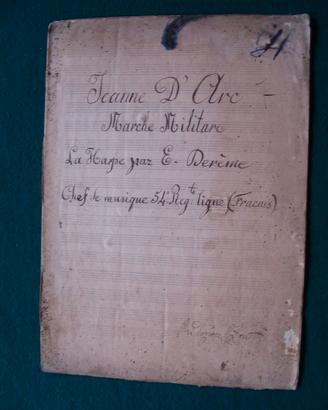 Jeanne D' Arc -
Marche Militare
La Harpe par E. Derême
Chef de musique 54e Regt. ligne (Fracais)